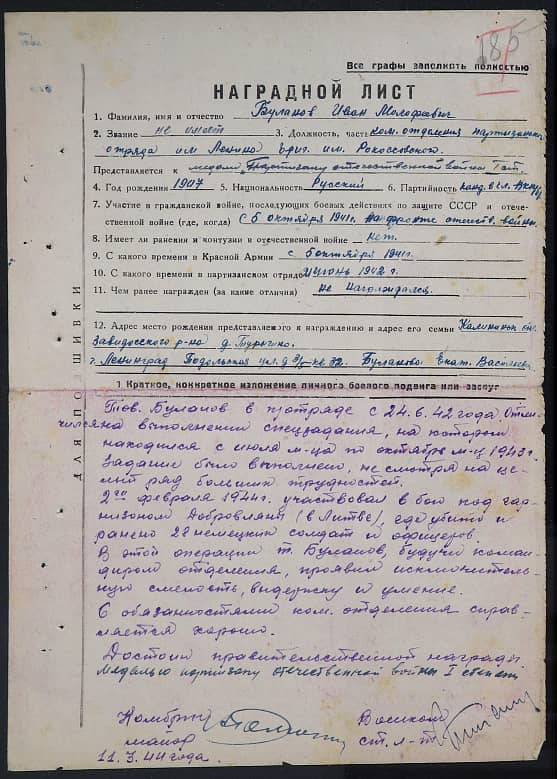 185
Все графы заполнять полностью
НАГРАДНОЙ ЛИСТ
1. Фамилия, имя и отчество Буланов Иван
2. Звание не имеет 3. Должность, часть ком. отделения партизанск.
отряда им Ленина бриг. им. Рокоссовского.
Представляется к медали "Партизану отечественной войны I ст.
4. Год рождения 1907 5. Национальность Русский 6. Партийность канд. в чл. ВКП/б
7. Участие в гражданской войне, последующих боевых действиях по защите СССР и отече-
ственной войне (где, когда) с 5 октября 1941г. на фронте отечеств. войны.
8. Имеет ли ранения и контузии в отечественной войне нет.
9. С какого времени в Красной Армии с 5 октября 1941г.
10. С какого времени в партизанском отряде июнь 1942 г.
11. Чем ранее награжден (за какие отличия) не награждался.
12. Адрес место рождения представляемого к награждению и адрес его семьи Калининск обл.
Завидовского р-на д.
г. Ленинград Подольская ул. д кв 32. Буланова Екат. Васильев.
1 Краткое, конкретное изложение личного боевого подвига или заслуг
Тов. Буланов в п/отряде с 24.6.42 года. Отли-
чился на выполнении спецзадания, на котором
находился с июля м-ца по октябрь м-ц 1943г.
Задание было выполнено, не смотря на це-
лый ряд больших трудностей.
2го февраля 1944г. участвовал в бою под гар-
низоном Добровляны (в Литве), где убито и
ранено 28 немецких солдат и офицеров.
В этой операции т. Буланов, будучи коман-
диром отделения, проявил исключитель-
ную смелость, выдержку и умение.
С обязанностями ком. отделения справ-
ляется хорошо.
Достоин правительственной награды.
Медалью партизану отечественной войны I степени
Комбриг
майор
11.3.44 года.
Военком
ст. л-т
ДЛЯ ПОДШИВКИ